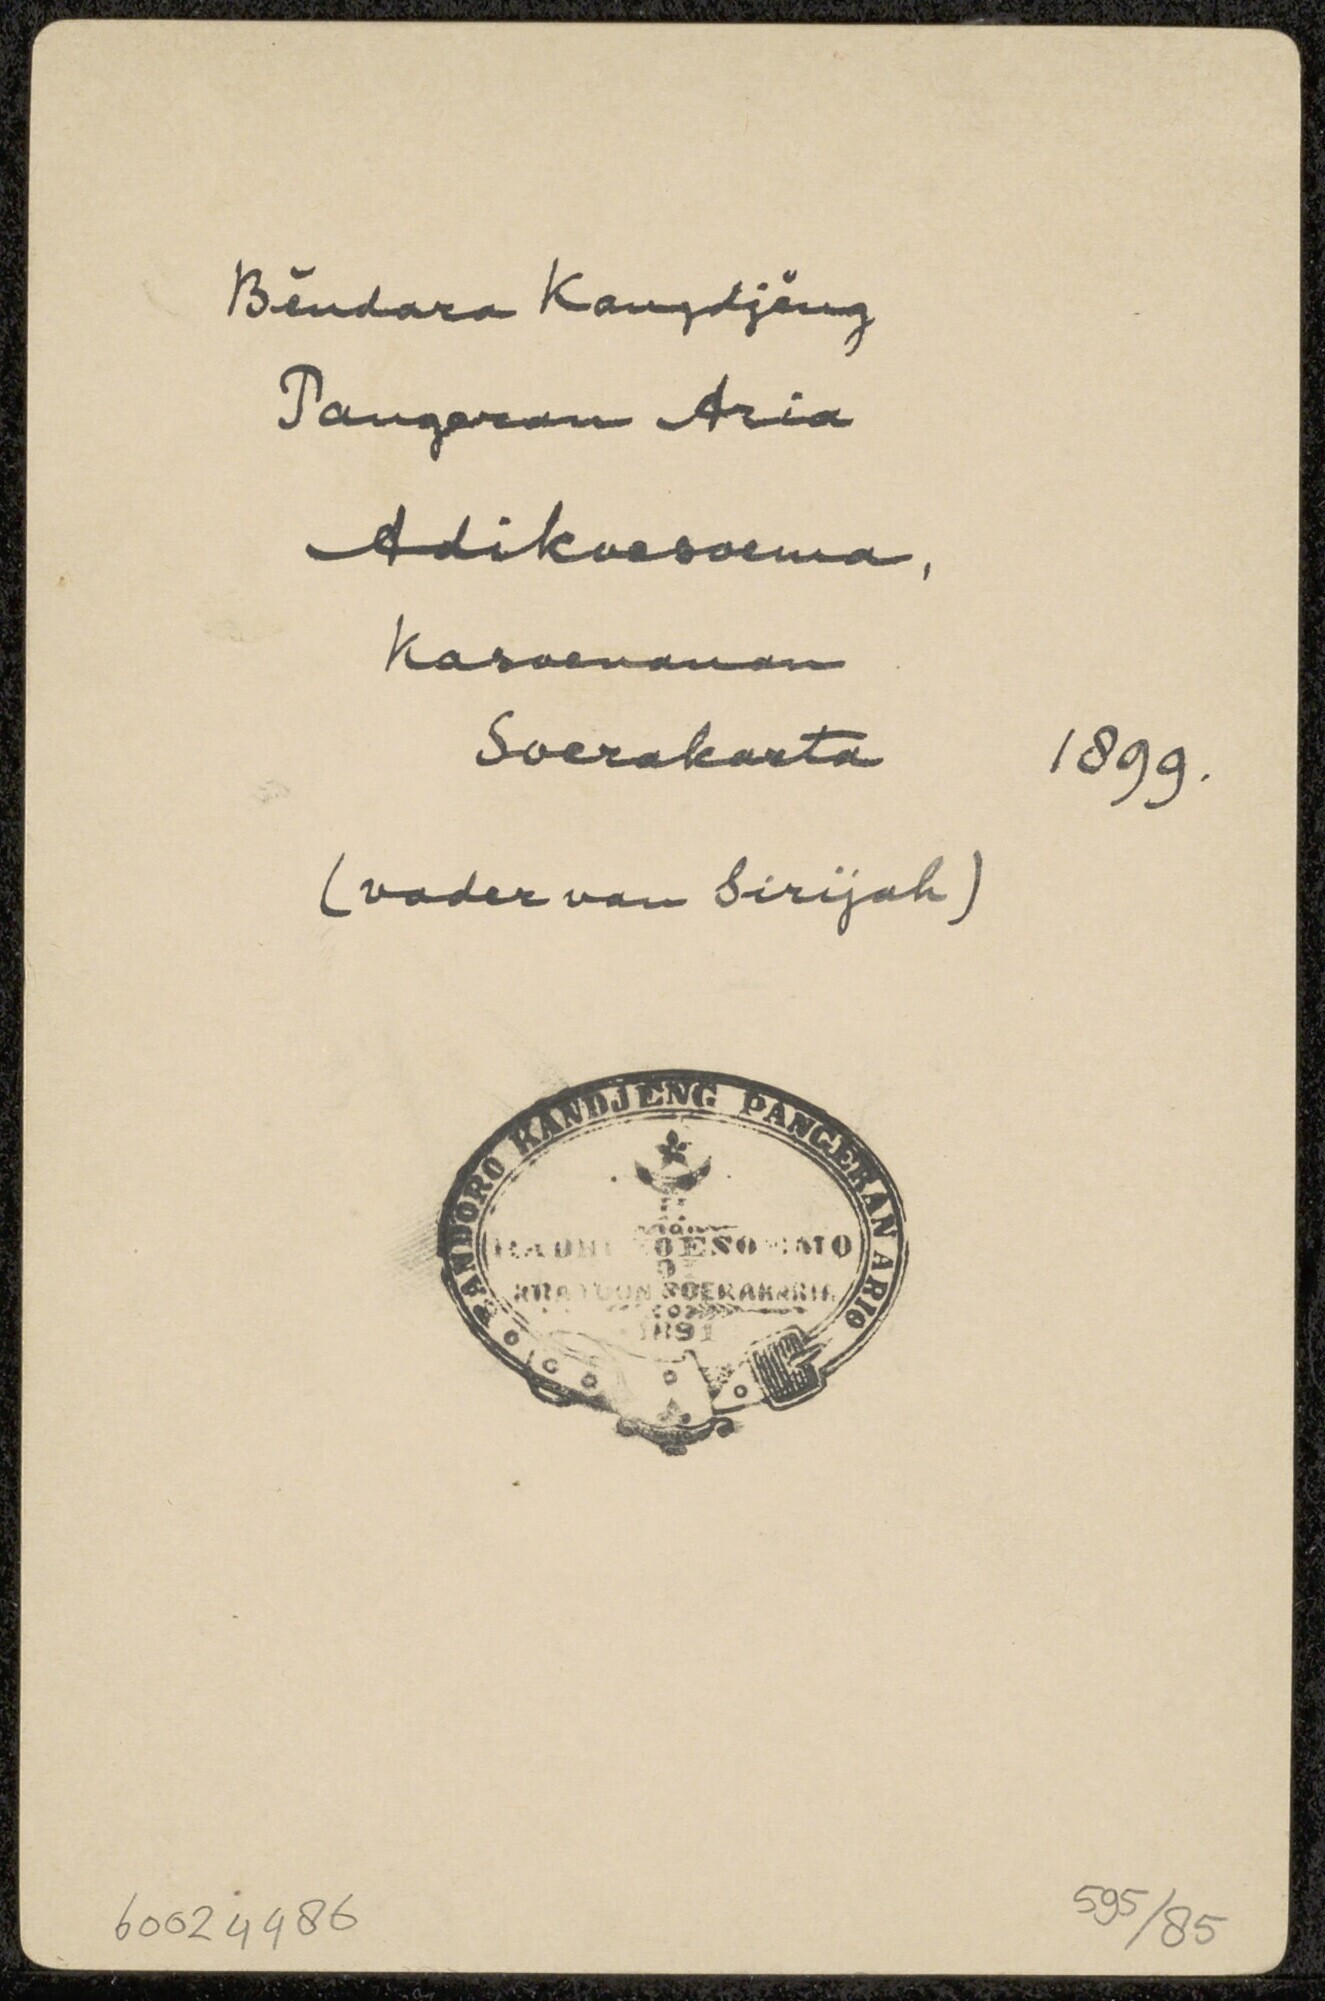 Běndara Kangdjěng
Pangeran Aria
Adikoesoema,
Kasoenanan
Soerakarta 1899.
(vader van Sirijah)
BANDORO KANDJENG PANGERAN ARIO
SOERAKARTA
1891
60024486
595/85